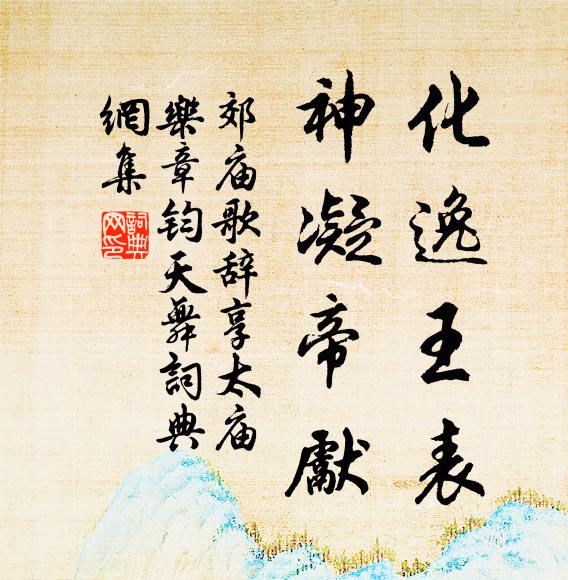 化逸王表
神凝帝献
郊庙歌辞享太庙
乐章钧天舞詞典
網集
詞典
网印